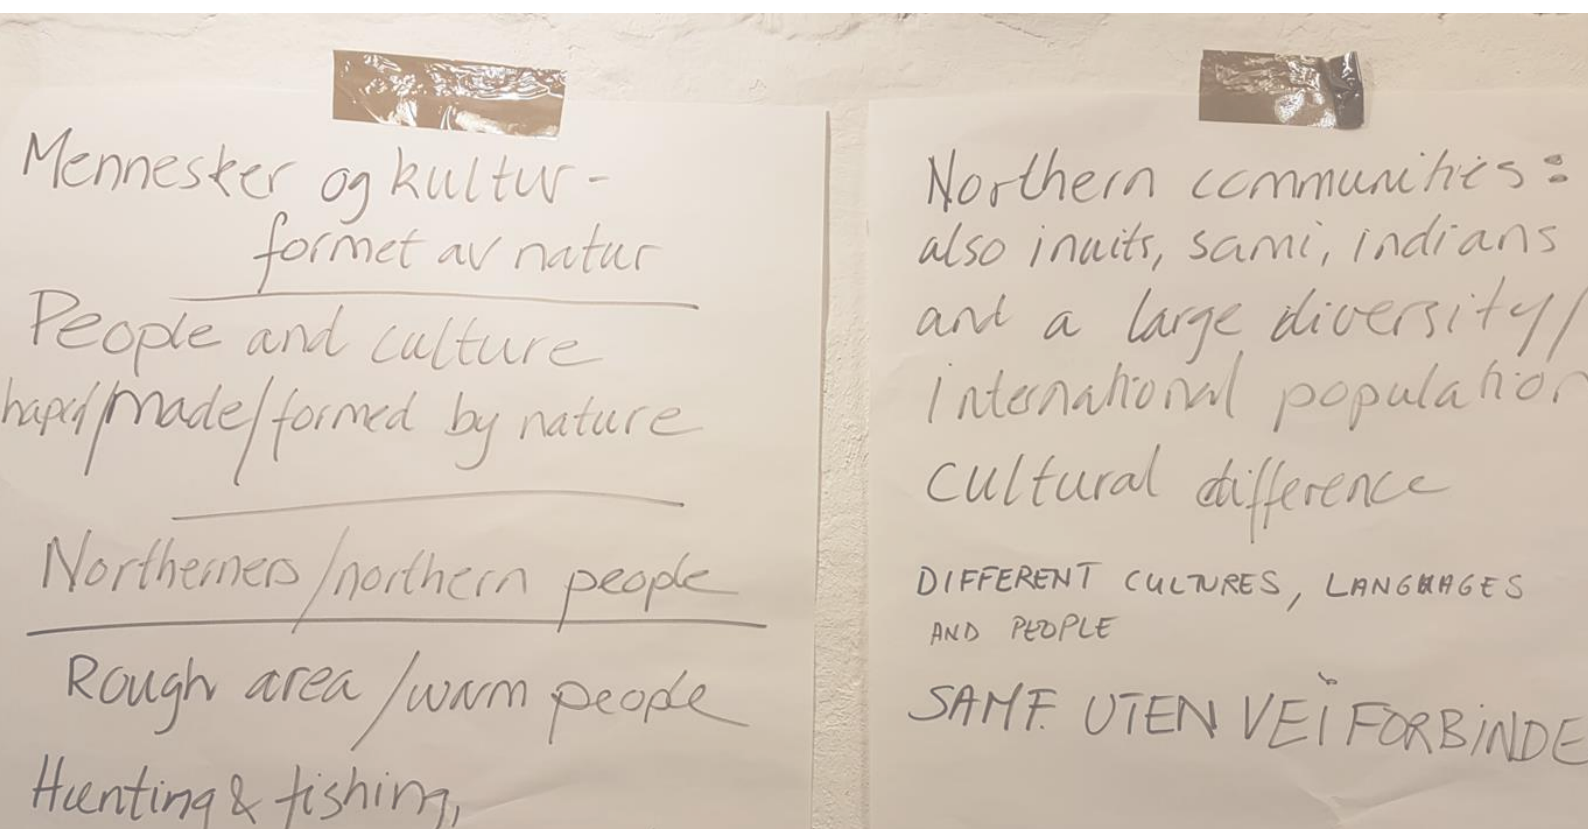 Mennesker og kultur -
formet av natur
People and culture
haped/made/formed by nature
Northerners/northern people
Rough area/warm people
Hunting & fishing,
Northern communities:
also inuits, sami, indians
and a large diversity/
international population
cultural difference
DIFFERENT CULTURES, LANGUAGES
AND PEOPLE
SAMF. UTEN VEIFORBINDE